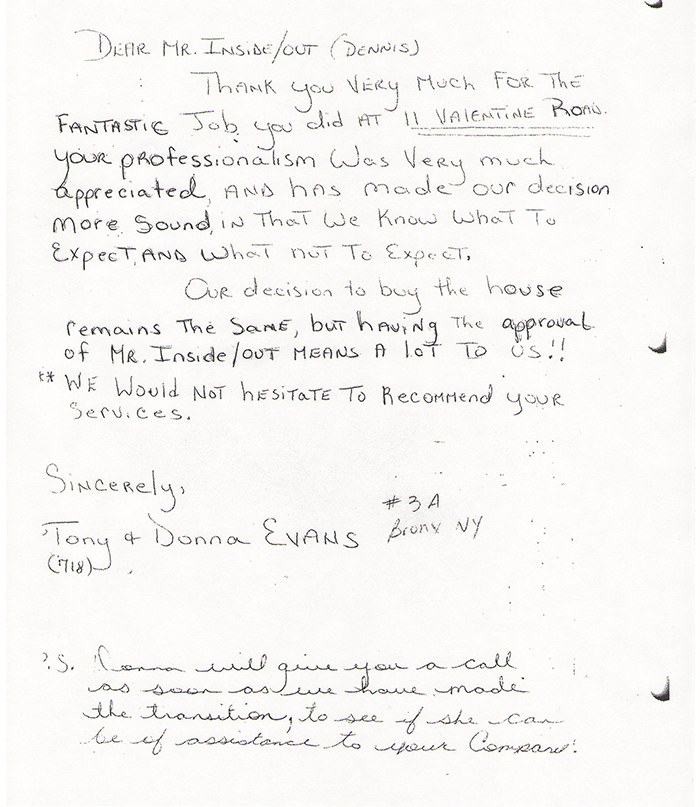 DEAR MR. INSIDE/OUT (DENNIS)
THANK you VERY Much FOR THE
FANTASTIC Job, you did AT 11 VALENTINE ROAD.
your professionalism Was Very much
appreciated, AND has made our decision
more sound, in THAT WE KNOW WHAT TO
EXPECT, AND WHAT NOT TO EXPECT.
OUR decision to buy the house
remains THE SAME, but having the approval
of MR. Inside/OUT MEANS A lOT TO US!!
** WE Would NOT hESITATE TO Recommend your
Services.
Sincerely,
Tony & Donna EVANS
# 3A
Bronx NY
(718)
.S. Donna will give you a call
as soon as we have made
the transition, to see if she can
be of assistance to your Company.